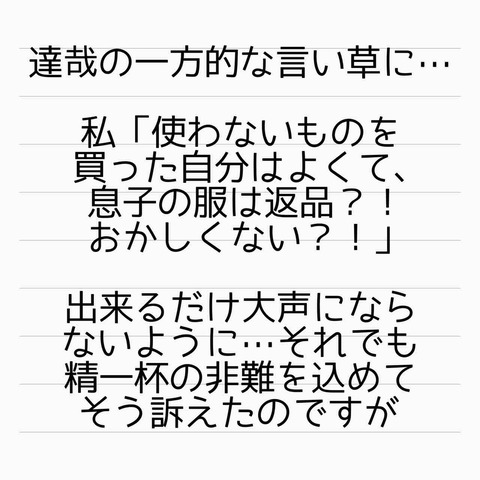 達哉の一方的な言い草に…
私「使わないものを
買った自分はよくて、
息子の服は返品？！
おかしくない？！」
出来るだけ大声になら
ないように…それでも
精一杯の非難を込めて
そう訴えたのですが